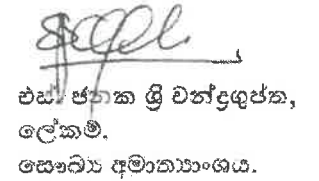 එස්. ජනක ශ්‍රී චන්ද්‍රගුප්ත,
ලේකම්,
සෞඛ්‍ය අමාත්‍යාංශය.